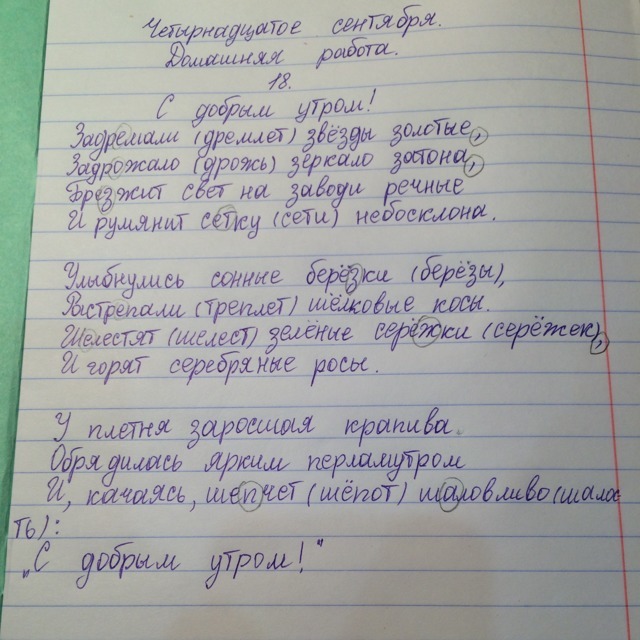 Четырнадцатое сентября.
Домашняя работа.
18.
С добрым утром!
Задремали (дремлет) звёзды золотые,
Задрожало (дрожь) зеркало затона,
Брезжит свет на заводи речные
И румянит сетку (сети) небосклона.
Улыбнулись сонные берёзки (берёзы),
Растрепали (треплет) шёлковые косы.
Шелестят (шелест) зелёные серёжки (серёжек),
И горят серебряные росы.
У плетня заросшая крапива.
Обрядилась ярким перламутром
И, качаясь, шепчет (шёпот) шаловливо (шалос
ть):
„С добрым утром!"